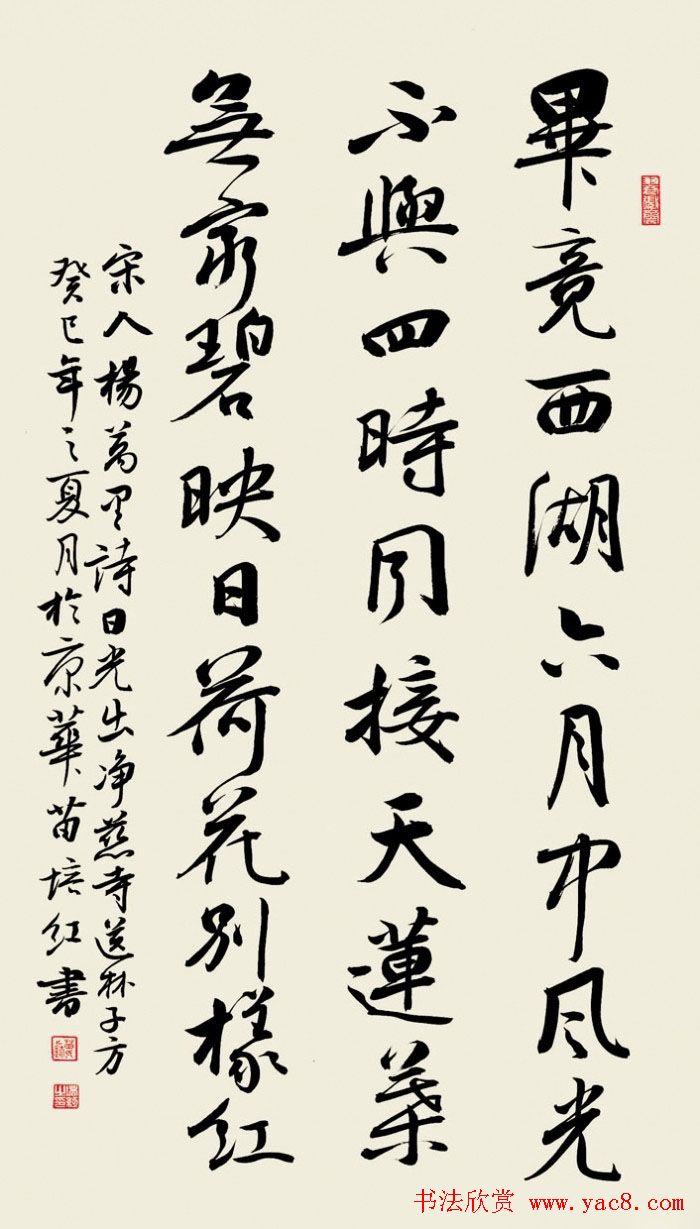 畢竟西湖六月中风光
不與四時同接天蓮葉
無穷碧映日荷花别樣红
宋人楊萬里詩日光出净慈寺送林子方
癸巳年之夏月於京華苗培红書
书法欣赏 www.yac8.com